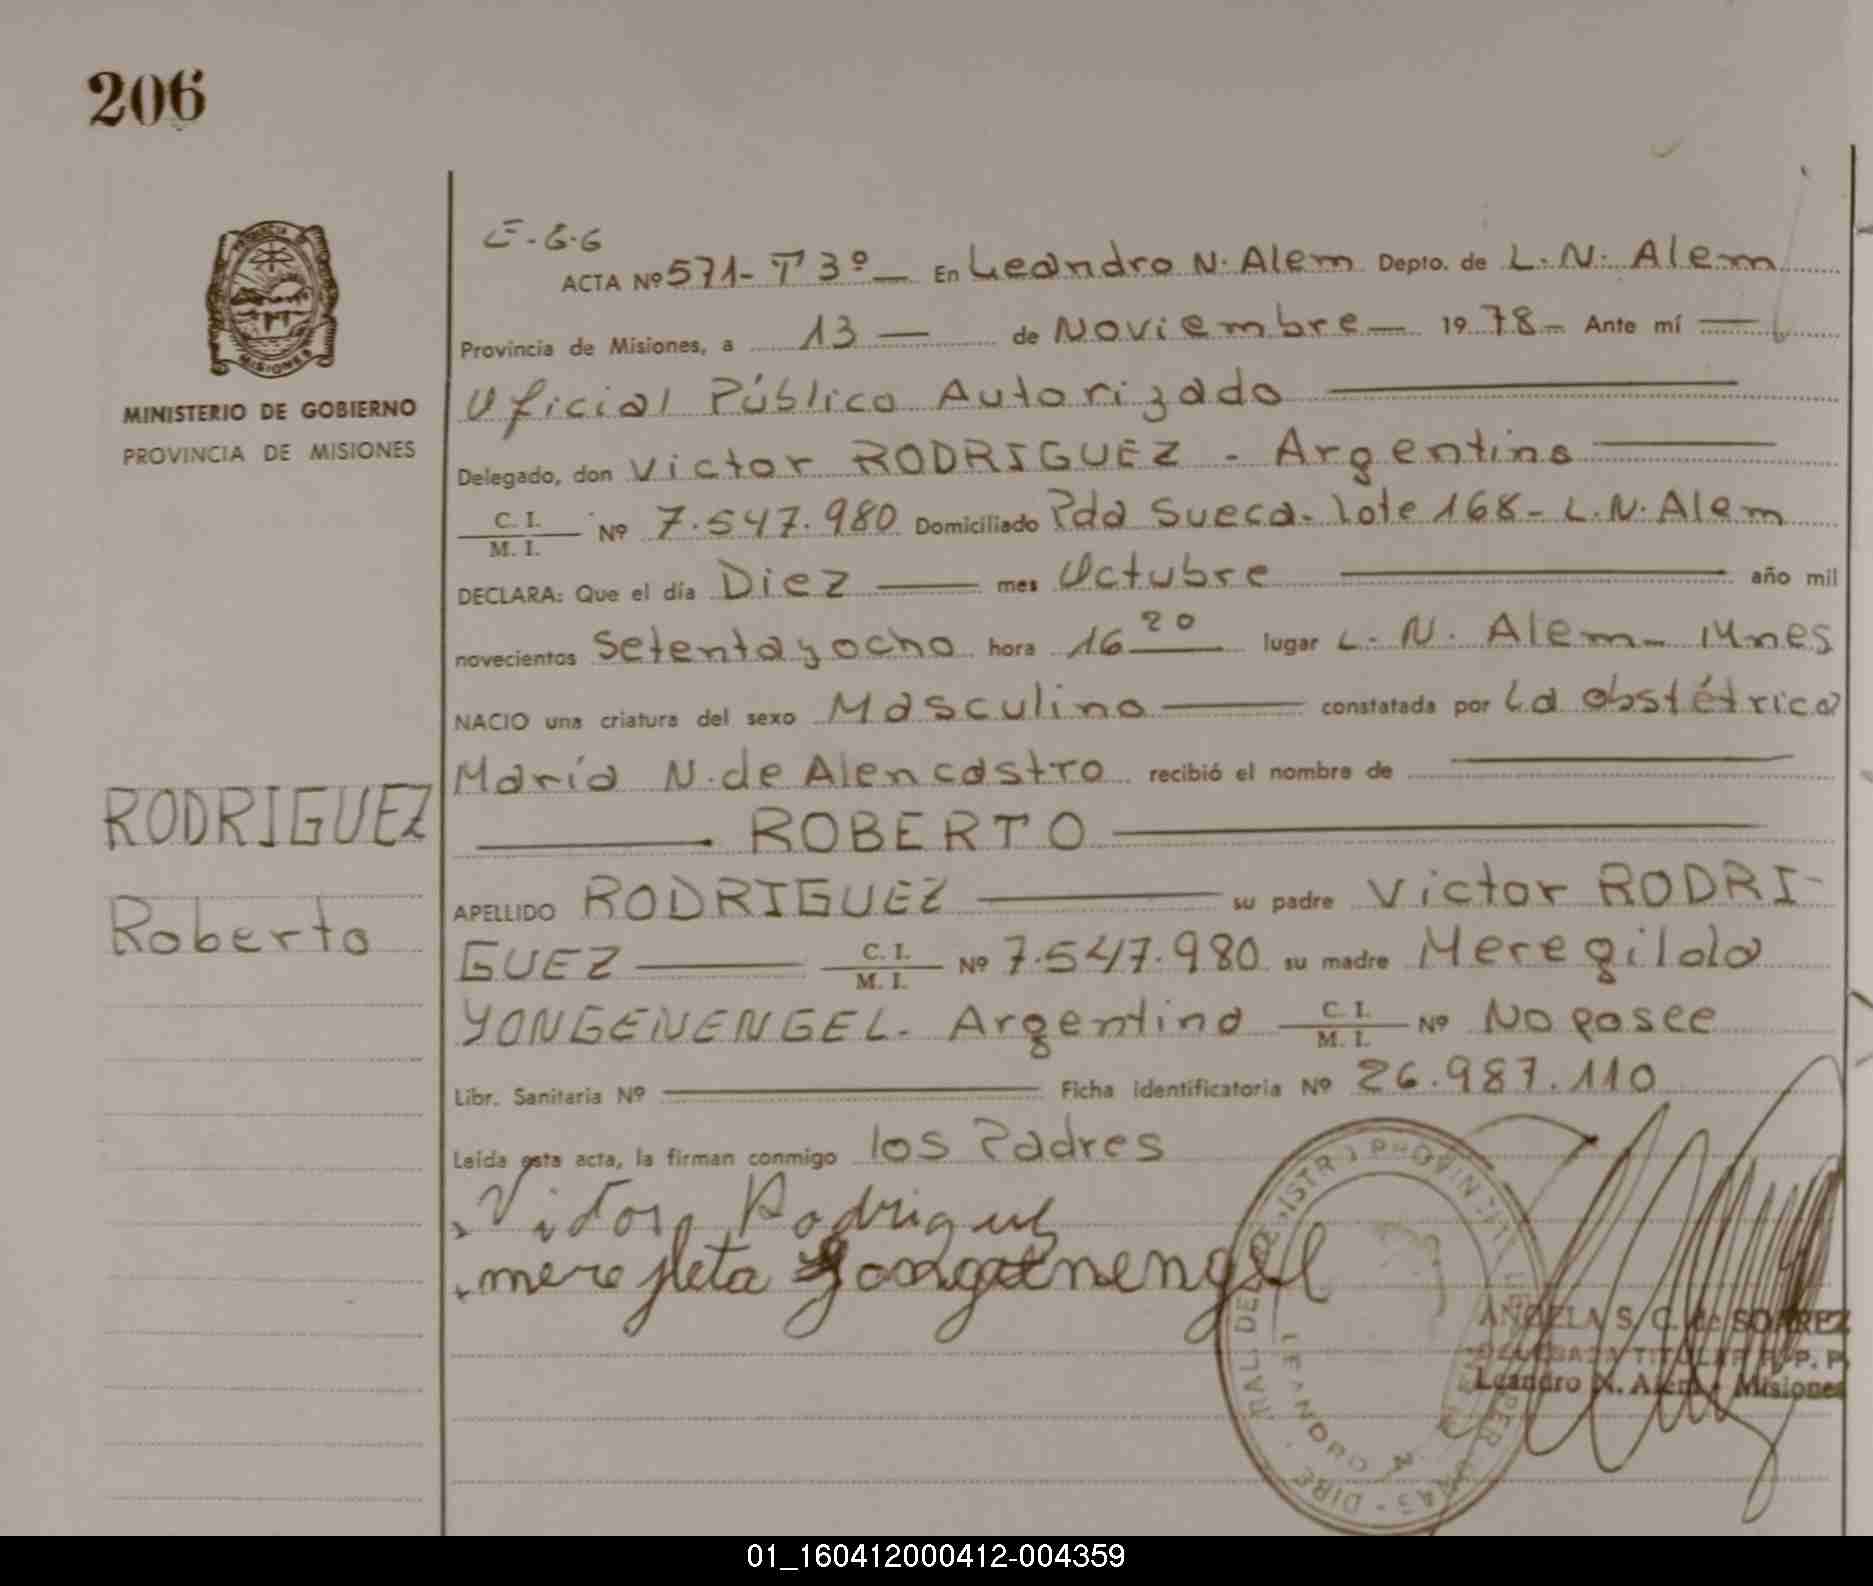 206
E-G-G
ACTA Nº 571- T 3º — En Leandro N. Alem Depto. de L. N. Alem
Provincia de Misiones, a 13 — de Noviembre — 19 78 — Ante mí —
MINISTERIO DE GOBIERNO
PROVINCIA DE MISIONES
Oficial Público Autorizado
Delegado, don Victor RODRIGUEZ - Argentino
C. I. / M. I. Nº 7.547.980 Domiciliado Pda Sueca. lote 168 - L.N. Alem
DECLARA: Que el día Diez — mes Octubre — año mil
novecientos Setenta y ocho hora 16 20 lugar L. N. Alem - Mnes
NACIO una criatura del sexo Masculino — constatada por La obstétrica
María N. de Alencastro recibió el nombre de —
— ROBERTO —
RODRIGUEZ
Roberto
APELLIDO RODRIGUEZ — su padre Victor RODRI-
GUEZ — C. I. / M. I. Nº 7.547.980 su madre Meregilda
YONGENENGEL. Argentina C. I. / M. I. Nº No posee
Libr. Sanitaria Nº — Ficha identificatoria Nº 26.987.110
Leída esta acta, la firman conmigo los Padres
Vitor Rodriguez
ANGELA S. C. de SOAREZ
DELEGADA TITULAR R. P. P.
Leandro N. Alem - Misiones
01_160412000412-004359